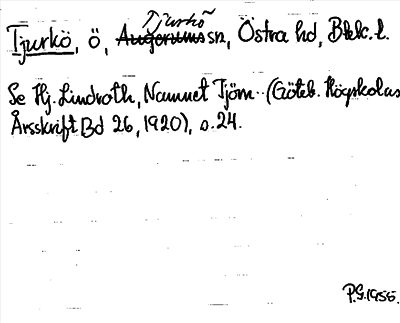 Tjurkö
Tjurkö, ö, Augerums sn, Östra hd, Blek. l.
Se Hj. Lindroth, Namnet Tjörn (Göteb. Högskolas
Årsskrift Bd 26, 1920), s. 24.
P.G. 1955.